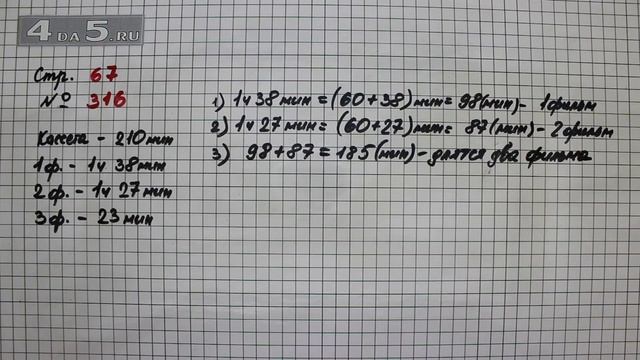 4 DA 5.RU
Стр. 67
№ 316
Кассета - 210 мин
1 ф. - 1 ч 38 мин
2 ф. - 1 ч 27 мин
3 ф. - 23 мин
1) 1 ч 38 мин = (60 + 38) мин = 98 (мин) - 1 фильм
2) 1 ч 27 мин = (60 + 27) мин = 87 (мин) - 2 фильм
3) 98 + 87 = 185 (мин) - длятся два фильма